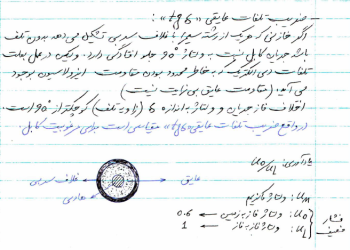 - ضریب تلفات عایقی «tgδ» :
اگر خازنی که هریک از رشته سیم‌ها با غلاف سربی تشکیل می‌دهد بدون تلف
باشد جریان کابل نسبت به ولتاژ 90° جلو افتادگی دارد. ولیکن در عمل بعلت
تلفات دی الکتریک و به خاطر محدود بودن مقاومت ایزولاسیون بوجود
می آید. (مقاومت عایق بی نهایت نیست)
اختلاف فاز جریان و ولتاژ به اندازه δ (زاویه تلف) کوچکتر از 90° است.
در واقع ضریب تلفات عایقی «tgδ» مقیاسی است برای مرغوبیت کابل
یادآوری: U0/UL
غلاف سربی
عایق
هادی
Um : ولتاژ ماکزیمم
U0 : ولتاژ فاز به زمین ← 0.6
UL : ولتاژ فاز به فاز ← 1
فشار
ضعیف